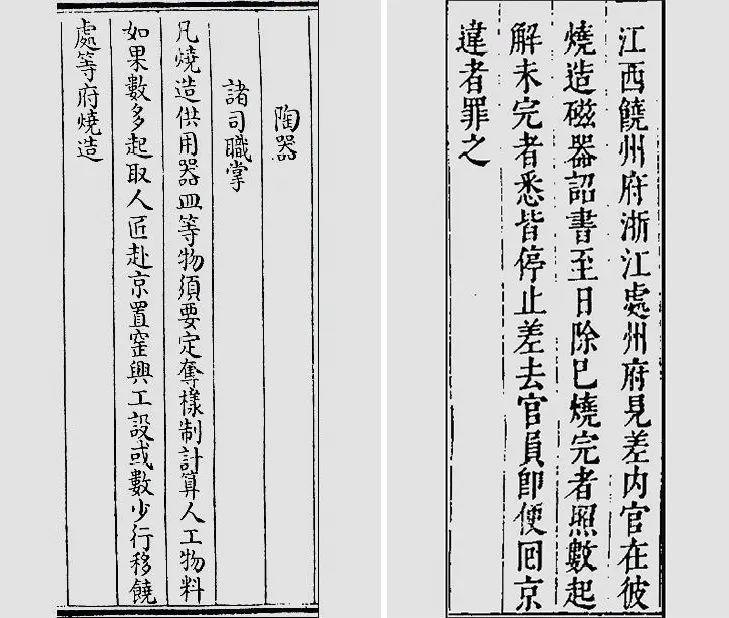 陶器
諸司職掌
凡燒造供用器皿等物須要定奪樣制計算人工物料
如果數多起取人匠赴京置窰興工設或數少行移饒
處等府燒造
江西饒州府浙江處州府見差内官在彼
燒造磁器詔書至日除已燒完者照數起
解未完者悉皆停止差去官員卽便囘京
違者罪之